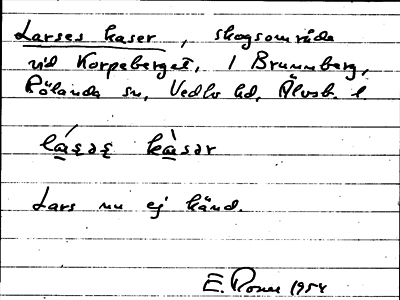 Larses kaser, skogsområde
vid Korpeberget, 1 Brunnberg,
Rölanda sn, Vedbo hd, Älvsb. l.
lá̱ṣəṣ kà̱sər
Lars nu ej känd.
E. Rosell 1954